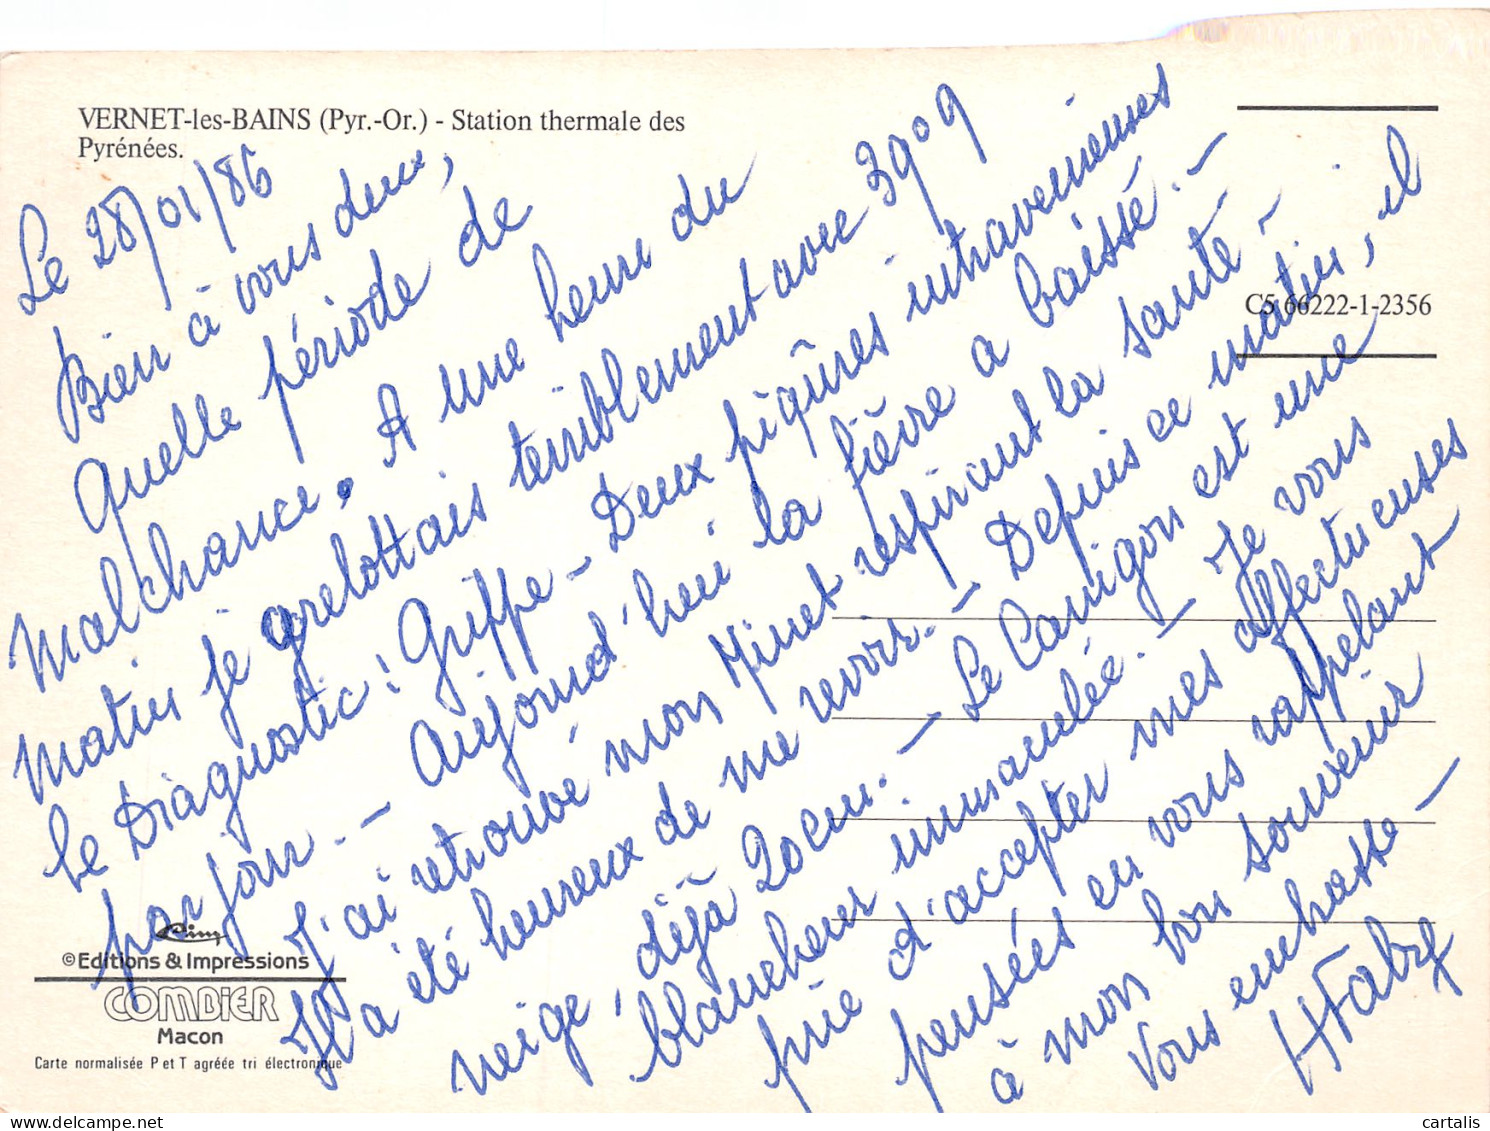 VERNET-les-BAINS (Pyr.-Or.) - Station thermale des
Pyrénées.
Le 28/01/86
Bien à vous deux,
Quelle période de
malchance. A une heure du
matin je grelottais terriblement avec 39°9
le Diagnostic! Griffe - Deux piqûres intraveineuses
par jour. - Aujourd'hui la fièvre a baissé. -
J'ai retrouvé mon Minet respirant la santé -
Il a été heureux de me revoir. - Depuis ce matin, il
neige, déjà 20cm. - Le Canigou est une
blancheur immaculée. - Je vous
prie d'accepter mes affectueuses
pensées en vous rappelant
à mon bon souvenir
Vous embrasse -
C5 66222-1-2356
© Editions & Impressions
COMBIER
Macon
Carte normalisée P et T agréée tri électronique
cartalis